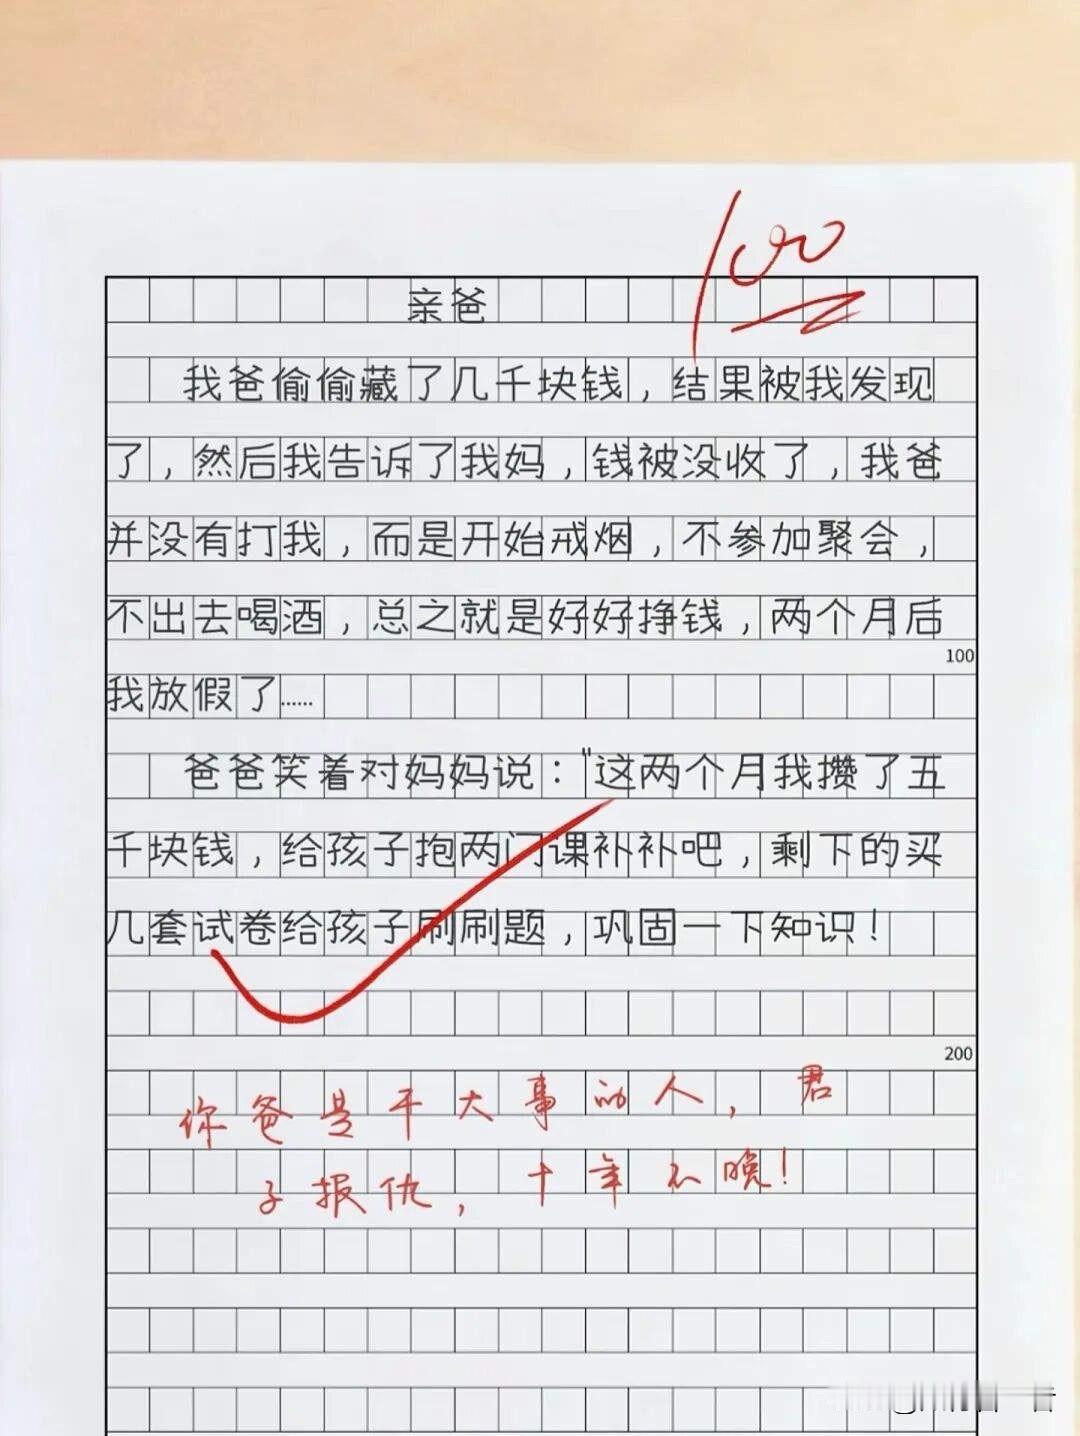 100
亲爸
我爸偷偷藏了几千块钱，结果被我发现
了，然后我告诉了我妈，钱被没收了，我爸
并没有打我，而是开始戒烟，不参加聚会，
不出去喝酒，总之就是好好挣钱，两个月后
100
我放假了……
爸爸笑着对妈妈说："这两个月我攒了五
千块钱，给孩子抱两门课补补吧，剩下的买
几套试卷给孩子刷刷题，巩固一下知识！
200
你爸是干大事的人，君
子报仇，十年不晚！